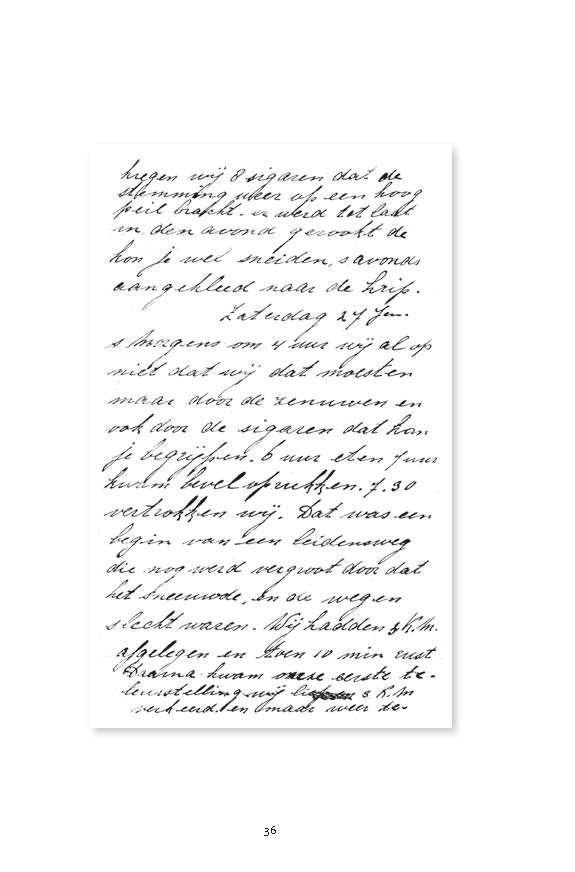 kregen wij 8 sigaren dat de
stemming weer op een hoog
peil bracht. er werd tot laat
in den avond gerookt de
kon je wel sneiden, s avonds
aangekleed naar de krip.
Zaterdag 27 Jan.
s Morgens om 4 uur wij al op
niet dat wij dat moesten
maar door de zenuwen en
ook door de sigaren dat kan
je begrijpen. 6 uur eten 7 uur
kwam bevel oprukken. 7.30
vertrokken wij. Dat was een
begin van een leidensweg
die nog werd vergroot door dat
het sneeuwde, en de wegen
slecht waren. Wij hadden K.M.
afgelegen en toen 10 min rust
Daarna kwam onze eerste te-
leurstelling wij liepen 3 K.M
verkeerd. en maar weer te-
36